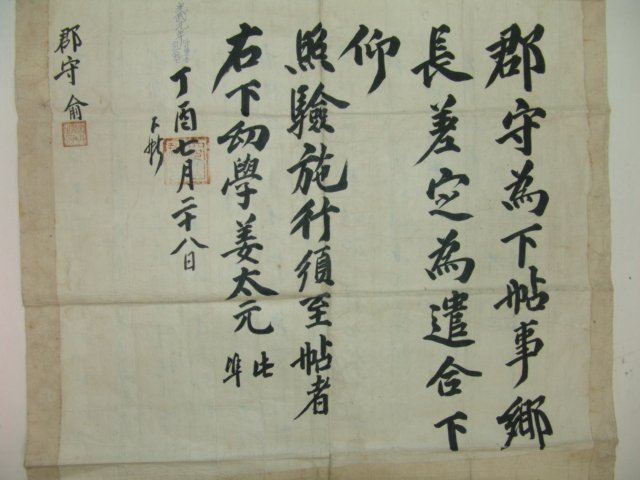 郡守為下帖事鄉
長差定為遣合下
仰
照驗施行須至帖者
右下幼學姜太元 此
準
丁酉七月二十八日
下帖
郡守 俞